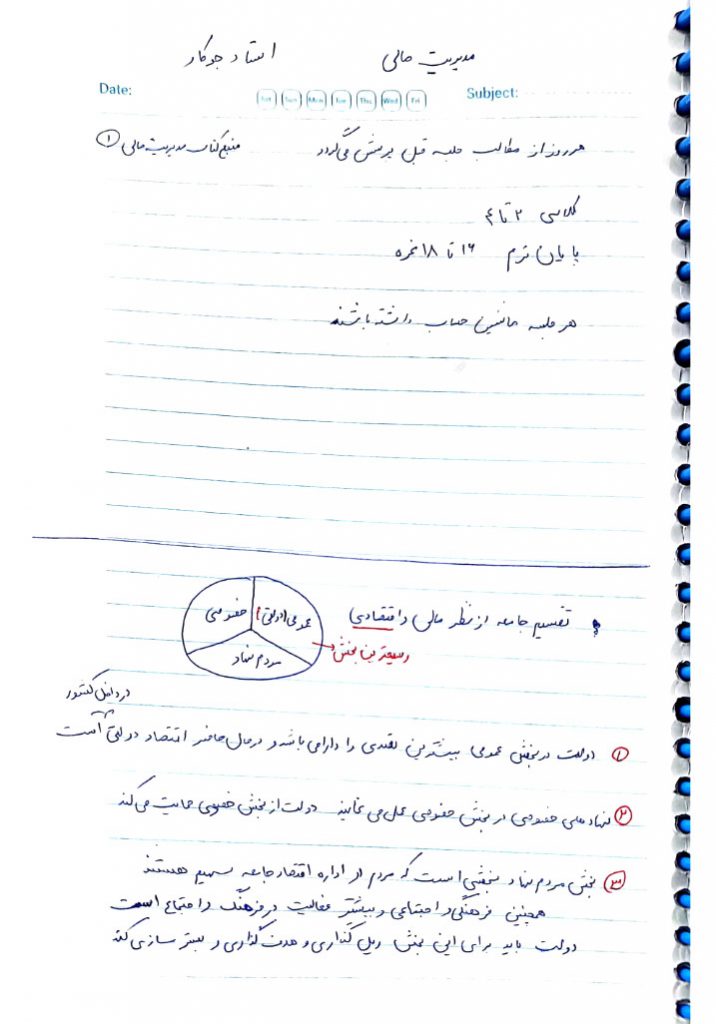 مدیریت مالی استاد جوکار
Date: Sat Sun Mon Tue Thu Wed Fri Subject:
هر روز از مطالب جلسه قبل پرسش می‌گردد منبع کتاب مدیریت مالی ۱
کلاسی ۲ تا ۴
پایان ترم ۱۶ تا ۱۸ نمره
هر جلسه ماشین حساب داشته باشند
تقسیم جامعه از نظر مالی و اقتصادی
عمومی (دولتی)
خصوصی
مردم نهاد
وسیعترین بخش
در داخل کشور
۱ دولت در بخش عمومی بیشترین نقدی را دارا می باشد و در حال حاضر اقتصاد دولتی است
۲ نهادهای خصوصی در بخش خصوصی عمل می نمایند دولت از بخش خصوصی حمایت می کند
۳ بخش مردم نهاد بخشی است که مردم در اداره اقتصاد جامعه سهیم هستند
همچنین فرهنگی و اجتماعی و بیشتر فعالیت در فرهنگ و اجتماع است
دولت باید برای این بخش ریل گذاری و هدف گذاری و بستر سازی کند